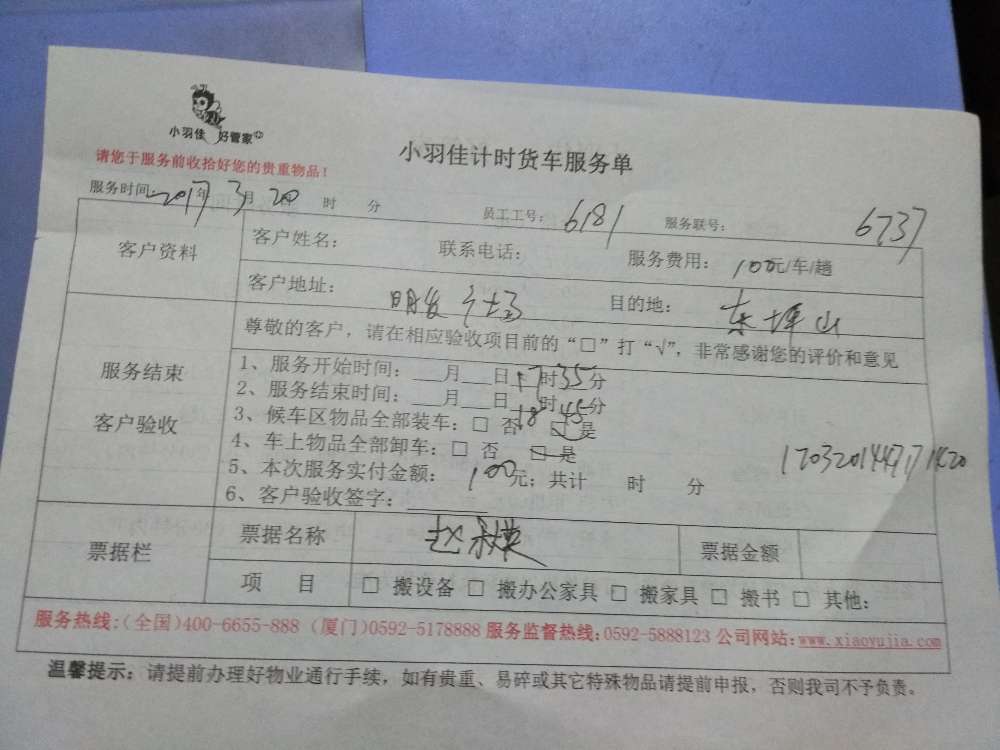 小羽佳 好管家
小羽佳计时货车服务单
请您于服务前收拾好您的贵重物品！
服务时间: 2017年 3月 20日 时 分 员工工号: 6181 服务联号: 6737
客户资料
客户姓名: 联系电话: 服务费用: 100元/车/趟
客户地址: 明发 目的地: 东坪山
服务结束
客户验收
尊敬的客户，请在相应验收项目前的“□”打“√”，非常感谢您的评价和意见
1、服务开始时间: ___月___日17时35分
2、服务结束时间: ___月___日18时45分
3、候车区物品全部装车: □ 否 □ 是
4、车上物品全部卸车: □ 否 □ 是
1703201447171420
5、本次服务实付金额: 100元; 共计 时 分
6、客户验收签字:
票据栏
票据名称 赵 票据金额
项 目 □ 搬设备 □ 搬办公家具 □ 搬家具 □ 搬书 □ 其他:
服务热线:(全国)400-6655-888 (厦门)0592-5178888 服务监督热线:0592-5888123 公司网站:www.xiaoyujia.com
温馨提示: 请提前办理好物业通行手续，如有贵重、易碎或其它特殊物品请提前申报，否则我司不予负责。